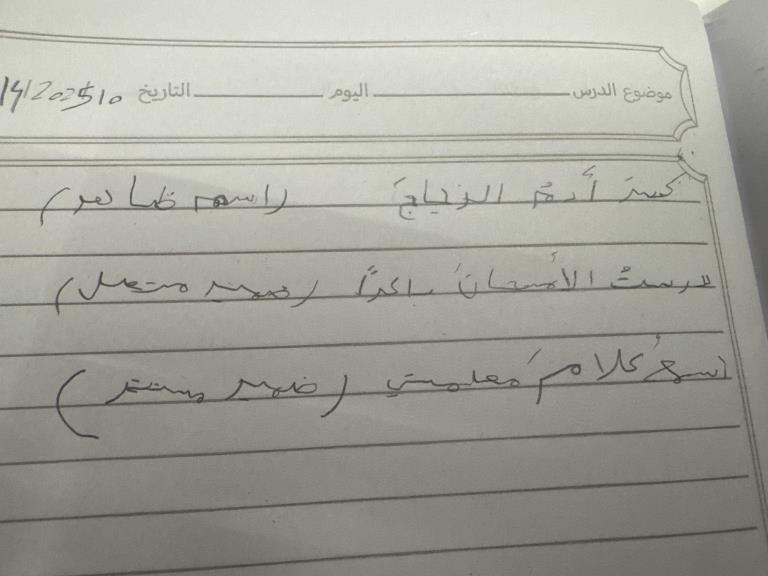 موضوع الدرس اليوم التاريخ 14/2025/10
كسرَ أدمُ الزجاجَ (اسم ظاهر)
درستُ الأمتحانَ باكراً (ضمير متصل)
اسمعُ كلامَ معلمتي (ضمير مستتر)